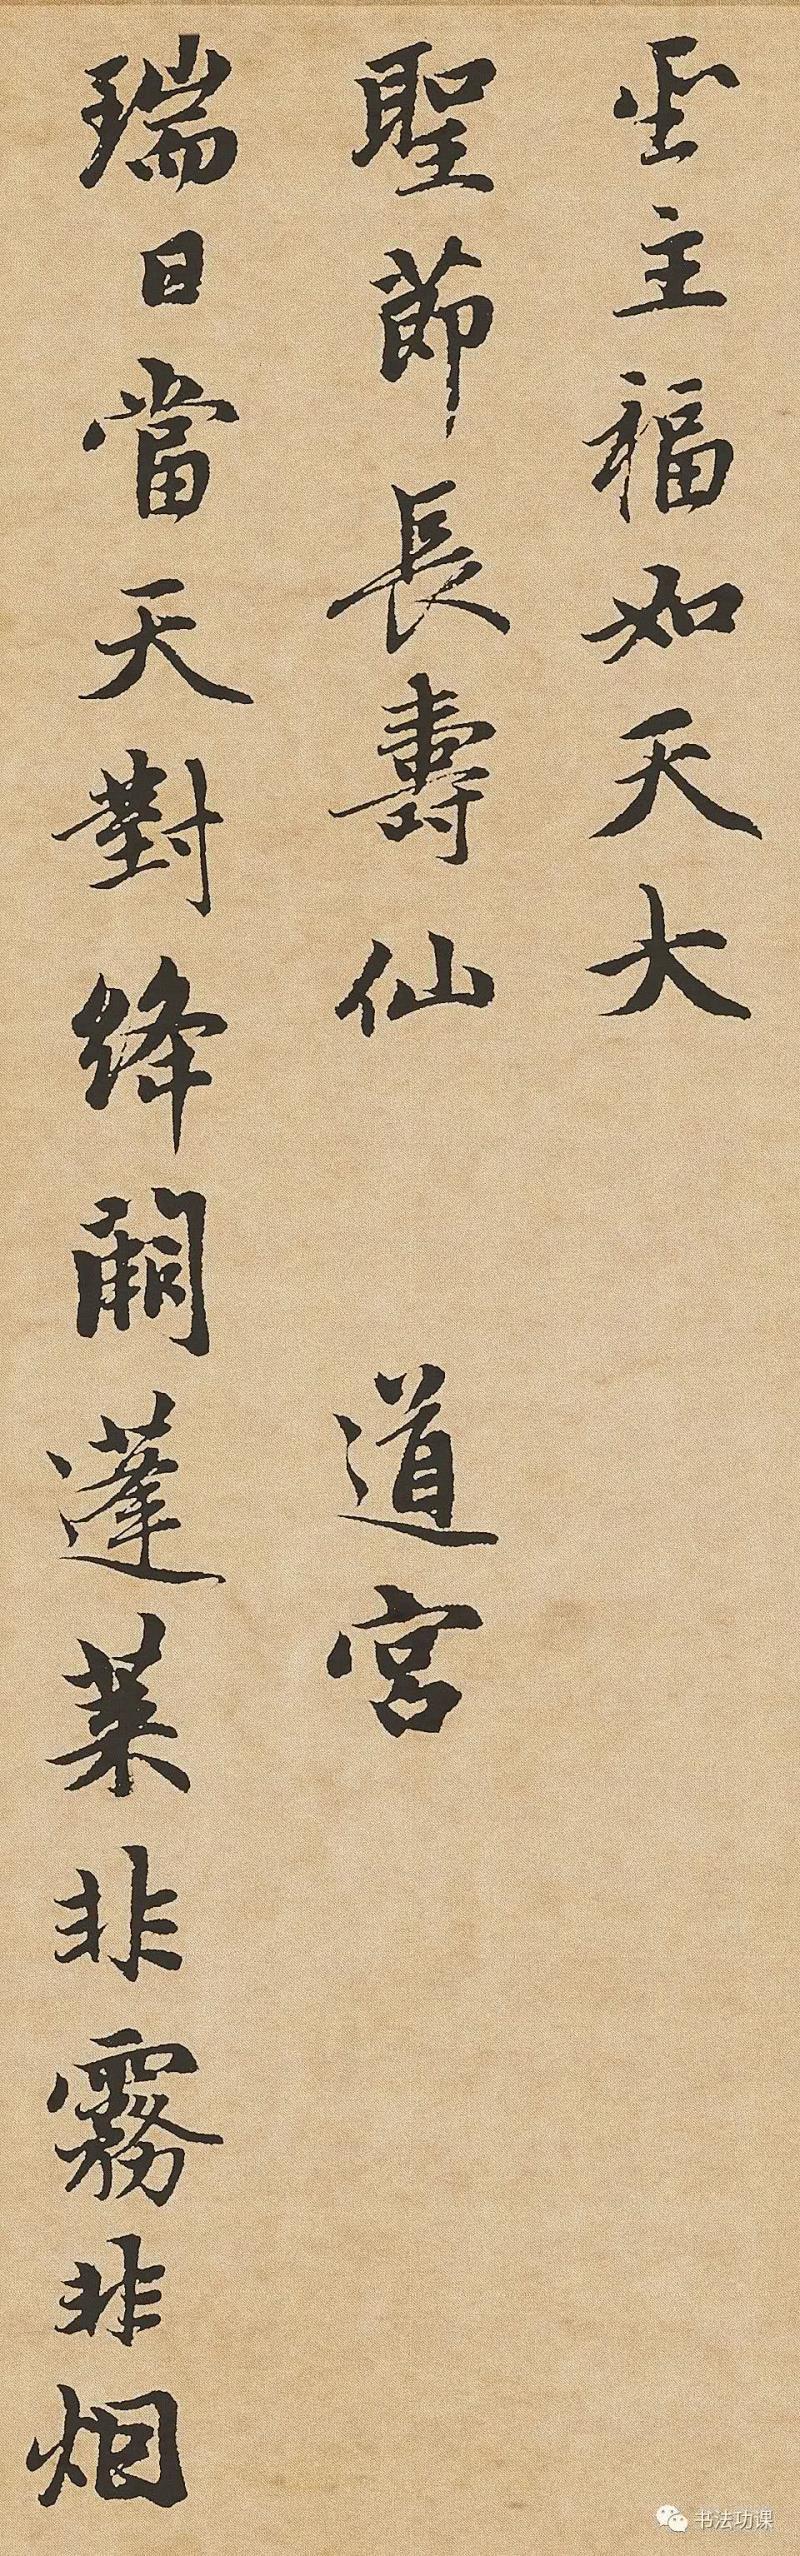 聖主福如天大
聖節長壽仙 道宮
瑞日當天對絳闕蓬萊非霧非烟
书法功课